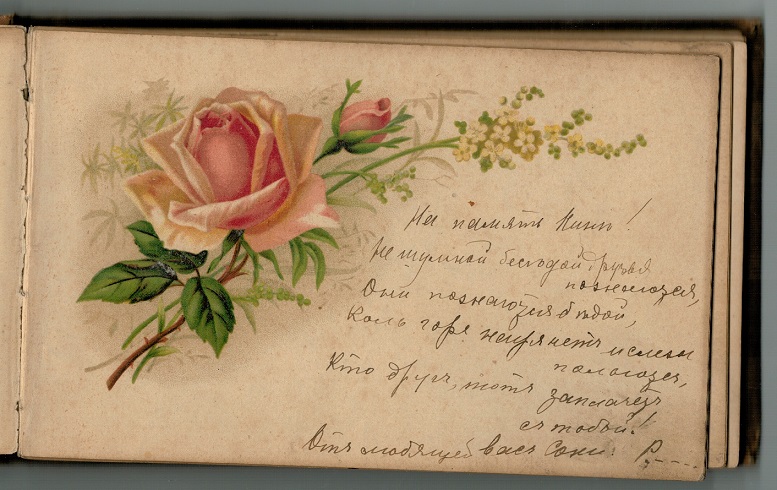 На память Нини!
Не шумной бесѣдой друзья
познаются,
Они познаются бѣдой,
Коль горе нагрянетъ и слезы
польются,
Кто другъ, тотъ заплачетъ
съ тобой!
Отъ любящей васъ Сони. Р